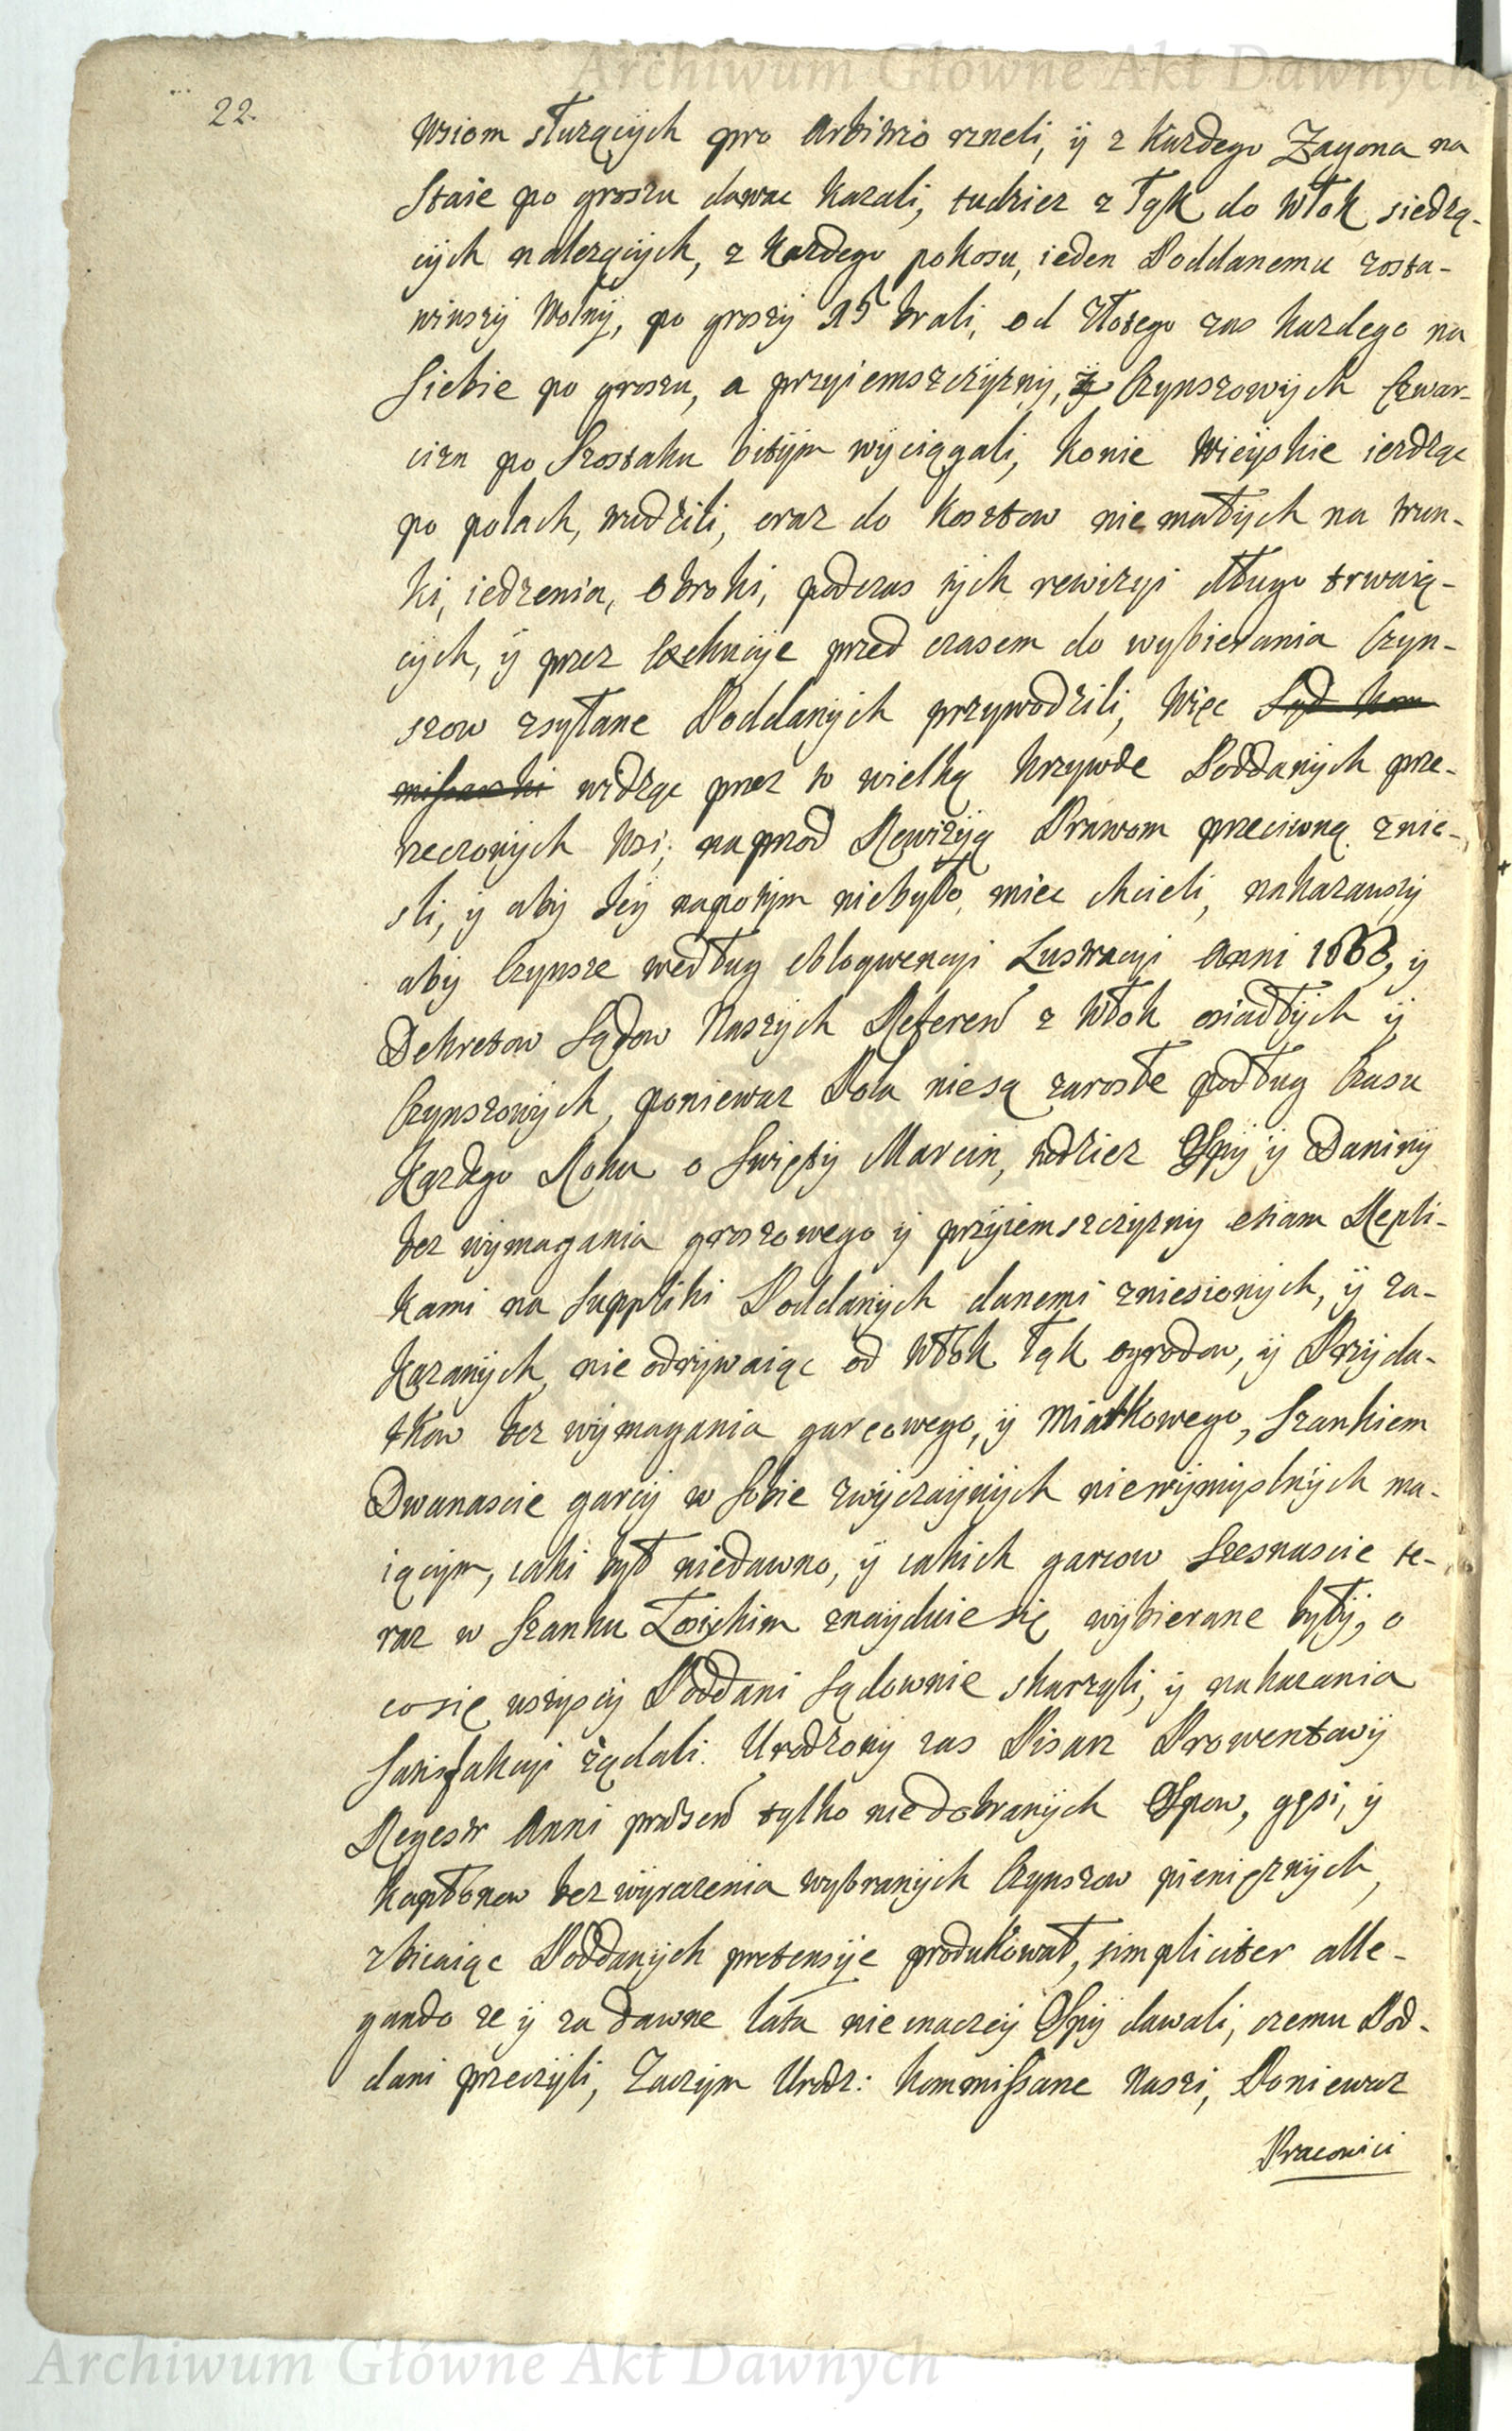 Archiwum Główne Akt Dawnych
22.
Wsiom służących pro Arbitrio rzneli, ÿ z Każdego Zagona na
Staie po groszu dawac Kazali, tudziez z Łąk do Włok siedzą-
cÿch nalezących, z Kazdego pokosu, ieden Poddanemu zosta-
wiwszÿ Wolnÿ, po groszÿ 15 brali, od Złotego zas kazdego na
Siebie po groszu, a przyiemszczÿznÿ, ÿ Czynszowÿch Czwar-
cizn po Szostaku bitÿm wÿciągali, Konie Wieÿskie iezdząc
po polach, trudzili, oraz do Kosztow nie małÿch na trun-
ki, iedzenia, obroki, podczas tÿch rewizyi długo trwaią-
cÿch, ÿ przez Exekucÿe przed czasem do wybierania Czyn-
szow zsyłane Poddanÿch przywodzili, Więc Sąd Kom
missarski widząc przez to wielką krzywde Poddanÿch prze-
rzeczonÿch Wsi, naprzod Rewizÿą Prawom przeciwną znie-
sli, ÿ abÿ tey napotÿm niebyło, miec chcieli, nakazawszÿ
abÿ Czynsze według obloquencyi Lustracyi Anni 1668, ÿ
Dekretow Sądow Naszÿch Referen z Włok osiadłÿch ÿ
Czynszowÿch, poniewaz Pola niesą zarosłe podług Czasu
Kazdego Roku o Swiętÿ Marcin, tudziez Ospÿ ÿ Daninÿ
bez wÿmagania groszowego ÿ przÿiemszczyznÿ etiam Repli-
kami na Suppliki Poddanÿch danemi zniesionÿch, ÿ za-
kazanÿch, nie odrÿwaiąc od Włok Łąk ogrodow, ÿ Przÿda-
tkow bez wÿmagania garcowego, ÿ Miatkowego, Szankiem
Dwanascie garcÿ w Sobie zwÿczaÿnÿch niewÿmÿslnÿch ma-
iącÿm, iaki był niedawno, ÿ iakich garcow Szesnascie te-
raz w Szanku Łosickim znayduie się wÿbierane bÿłÿ, o
cosię wszyscÿ Poddani Sądownie skarzyli, ÿ nakazania
Satisfakcyi ządali. Urodzony zas Pisarz Prowentowÿ
Regestr Anni præsen tylko nie dobranÿch Ospow, gęsi, ÿ
Kapłonow bez wÿrazenia wybranÿch Czynszow pieniężnÿch,
zbiiaiąc Poddanÿch pretensÿe produkował, simpliciter alle-
gando ze ÿ za dawne lata nie inaczeÿ Ospÿ dawali, czemu Pod-
dani przeczÿli, Zaczÿm Urodz: Kommissarze Nasi, Poniewaz
Pracowici
Archiwum Główne Akt Dawnych